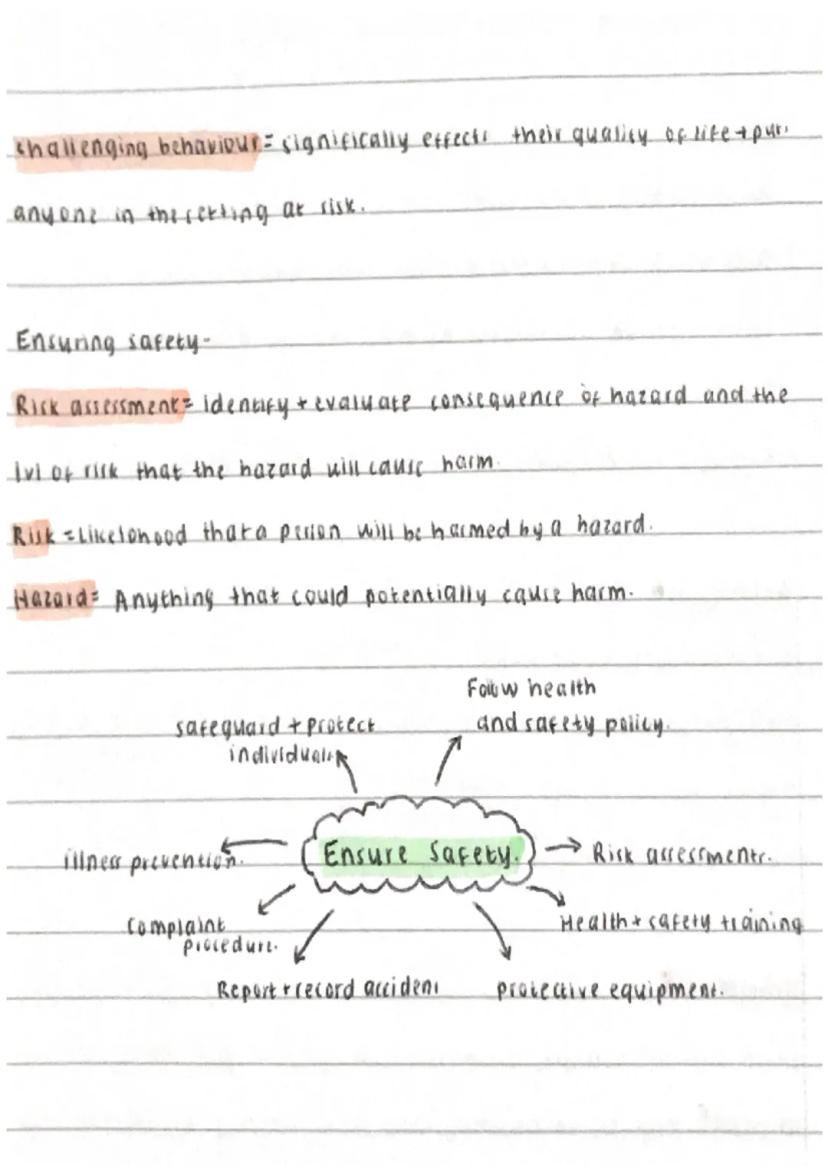 challenging behaviour = significally effects their quality of life + puts
anyone in the setting at risk.
Ensuring safety-
Risk assessment = identify + evaluate consequence of hazard and the
lvl of risk that the hazard will cause harm.
Risk = Likelohood that a person will be harmed by a hazard.
Hazard = Anything that could potentially cause harm.
Follow health
safeguard + protect and safety policy.
individuals
Ensure Safety.
illness prevention. Risk assessments.
Complaint Health + safety training
procedure.
Report + record accident protective equipment.